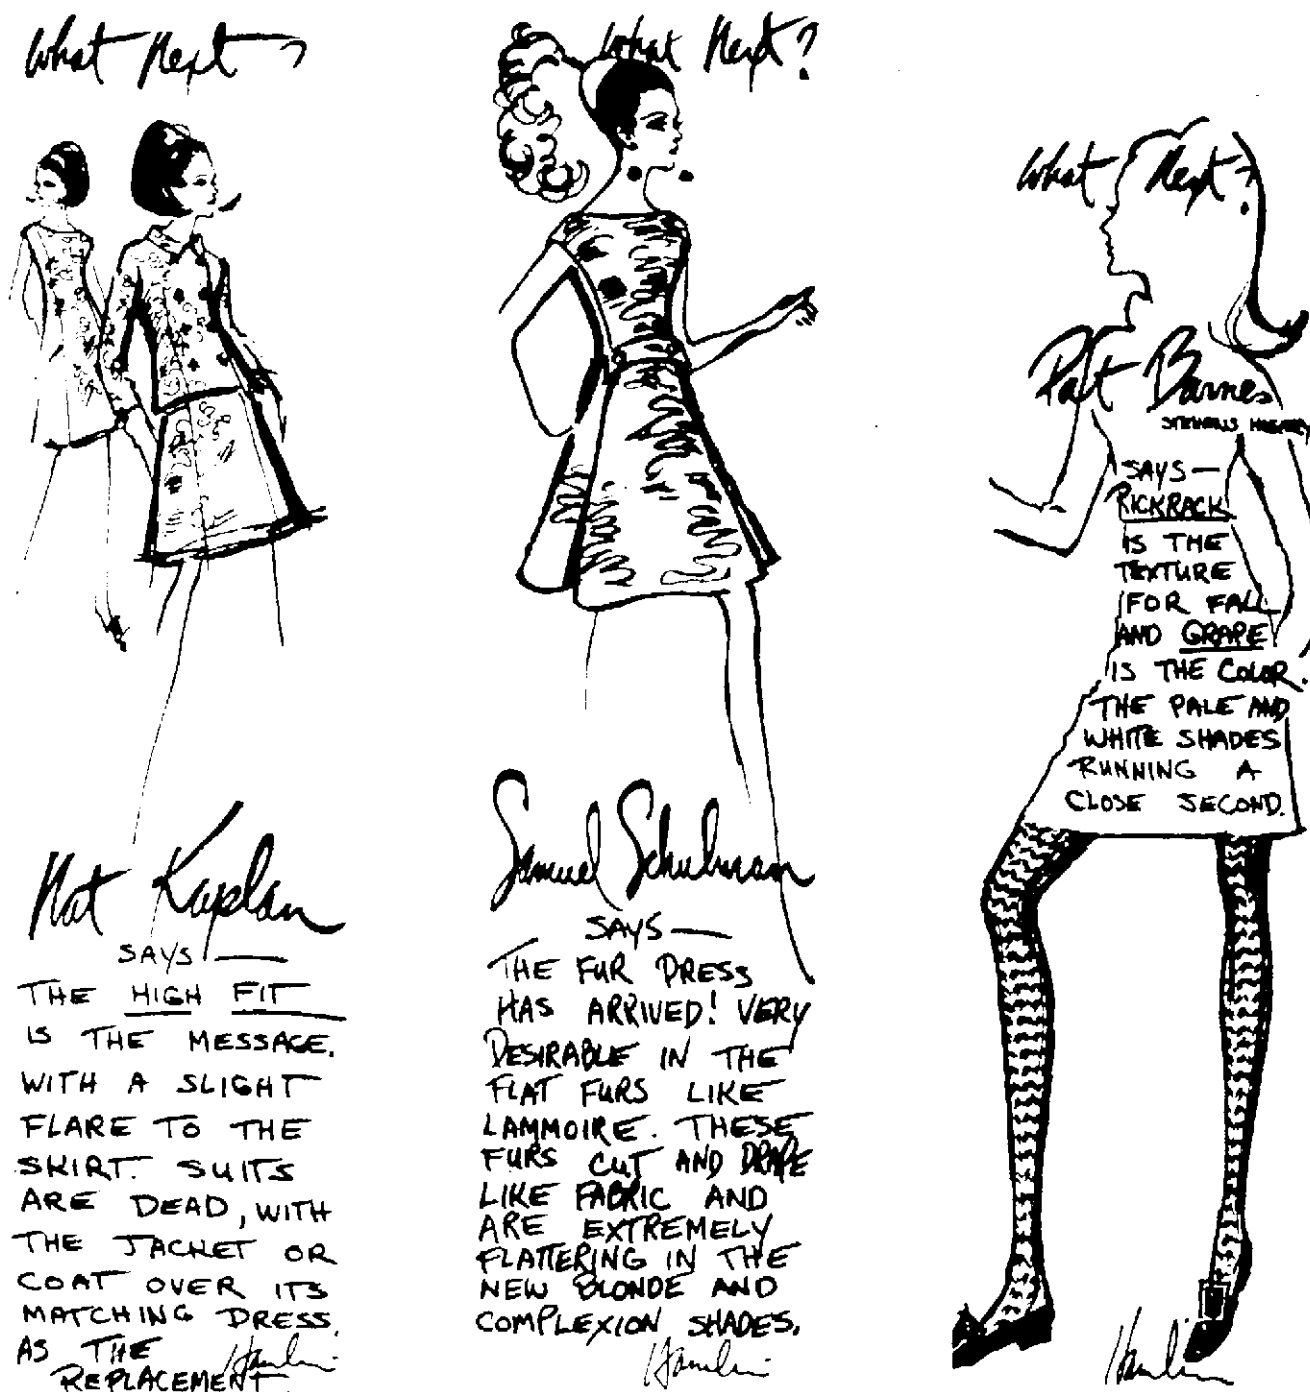 What Next?
Nat Kaplan
SAYS —
THE HIGH FIT
IS THE MESSAGE.
WITH A SLIGHT
FLARE TO THE
SKIRT. SUITS
ARE DEAD, WITH
THE JACKET OR
COAT OVER ITS
MATCHING DRESS.
AS THE
REPLACEMENT
What Next?
Samuel Schulman
SAYS —
THE FUR DRESS
HAS ARRIVED! VERY
DESIRABLE IN THE
FLAT FURS LIKE
LAMMOIRE. THESE
FURS CUT AND DRAPE
LIKE FABRIC AND
ARE EXTREMELY
FLATTERING IN THE
NEW BLONDE AND
COMPLEXION SHADES.
What Next?
Pat Barnes
SAYS —
RICKRACK
IS THE
TEXTURE
FOR FALL
AND GRAPE
IS THE COLOR.
THE PALE AND
WHITE SHADES
RUNNING A
CLOSE SECOND.